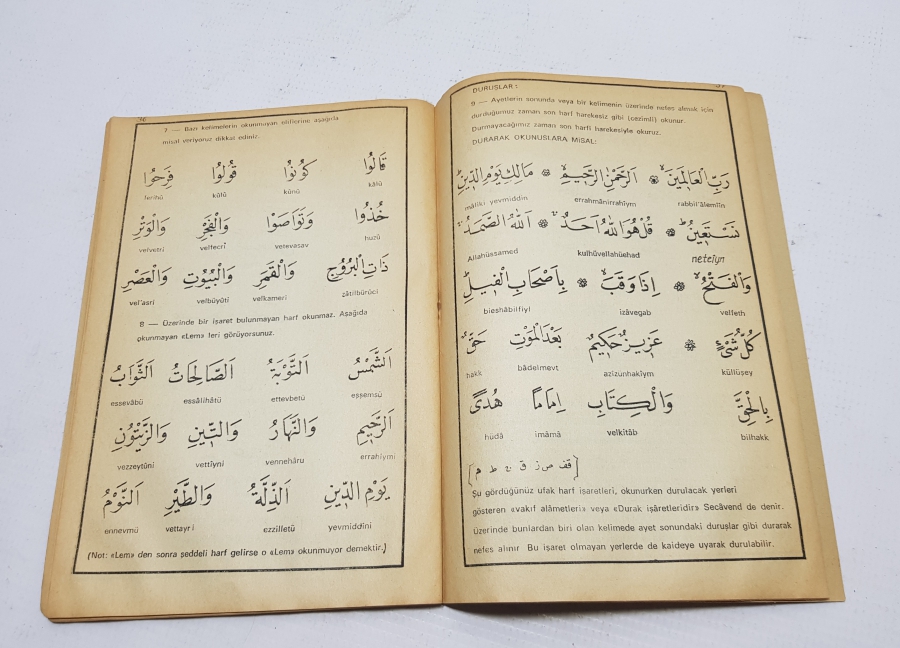 7 — Bazı kelimelerin okunmayan eliflerine aşağıda
misal veriyoruz dikkat ediniz.
قَالُوا كُونُوا قُولُوا فَرِحُوا
kâlû kûnû kûlû ferihû
خُذُوا وَتَوَاصَوْا وَالْفَجْرِ وَالْوَتْرِ
huzû vetevasav velfecri velvetri
ذَاتِ الْبُرُوجِ وَالْقَمَرِ وَالْبُيُوتِ وَالْعَصْرِ
zâtilbürûci velkameri velbüyûti vel'asri
8 — Üzerinde bir işaret bulunmayan harf okunmaz. Aşağıda
okunmayan «Lem» leri görüyorsunuz.
اَلشَّمْسُ اَلتَّوْبَةُ اَلصَّالِحَاتُ اَلثَّوَابُ
eşşemsü ettevbetü essâlihâtü essevâbü
اَلرَّحِيمِ وَالنَّهَارُ وَالتِّينِ وَالزَّيْتُونِ
errahîymi vennehâru vettîyni vezzeytûni
يَوْمِ الدِّينِ اَلذِّلَّةُ وَالطَّيْرِ اَلنَّوْمُ
yevmiddini ezzilletü vettayri ennevmü
(Not: «Lem» den sonra şeddeli harf gelirse o «Lem» okunmuyor demektir.)
DURUŞLAR:
9 — Ayetlerin sonunda veya bir kelimenin üzerinde nefes almak için
durduğumuz zaman son harf harekesiz gibi (cezimli) okunur.
Durmayacağımız zaman son harfi harekesiyle okuruz.
DURARAK OKUNUSLARA MİSAL:
رَبِّ الْعَالَمِينَ اَلرَّحْمٰنِ الرَّحِيمِ مَالِكِ يَوْمِ الدِّينِ
rabbil'âlemîîn errahmânirrahîym mâliki yevmiddin
نَسْتَعِينُ قُلْ هُوَ اللّٰهُ اَحَدٌ اَللّٰهُ الصَّمَدُ
neteîyn kulhüvellahüehad Allahüssamed
وَالْفَتْحُ اِذَا وَقَبَ بِاَصْحَابِ الْفِيلِ
velfeth izâvegab bieshâbilfiyl
كُلُّ شَيْءٍ عَزِيزٌ حَكِيمٌ بَعْدَ الْمَوْتِ حَقٌّ
küllüşey azîzunhakîym bâdelmevt hakk
بِالْحَقِّ وَالْكِتَابِ اِمَامًا هُدًى
bilhakk velkitâb imâmâ hüdâ
Şu gördüğünüz ufak harf işaretleri, okunurken durulacak yerleri
gösteren «vakıf alâmetleri» veya «Durak işâretleridir» Secâvend de denir.
Üzerinde bunlardan biri olan kelimede ayet sonundaki duruşlar gibi durarak
nefes alınır Bu işaret olmayan yerlerde de kaideye uyarak durulabilir.